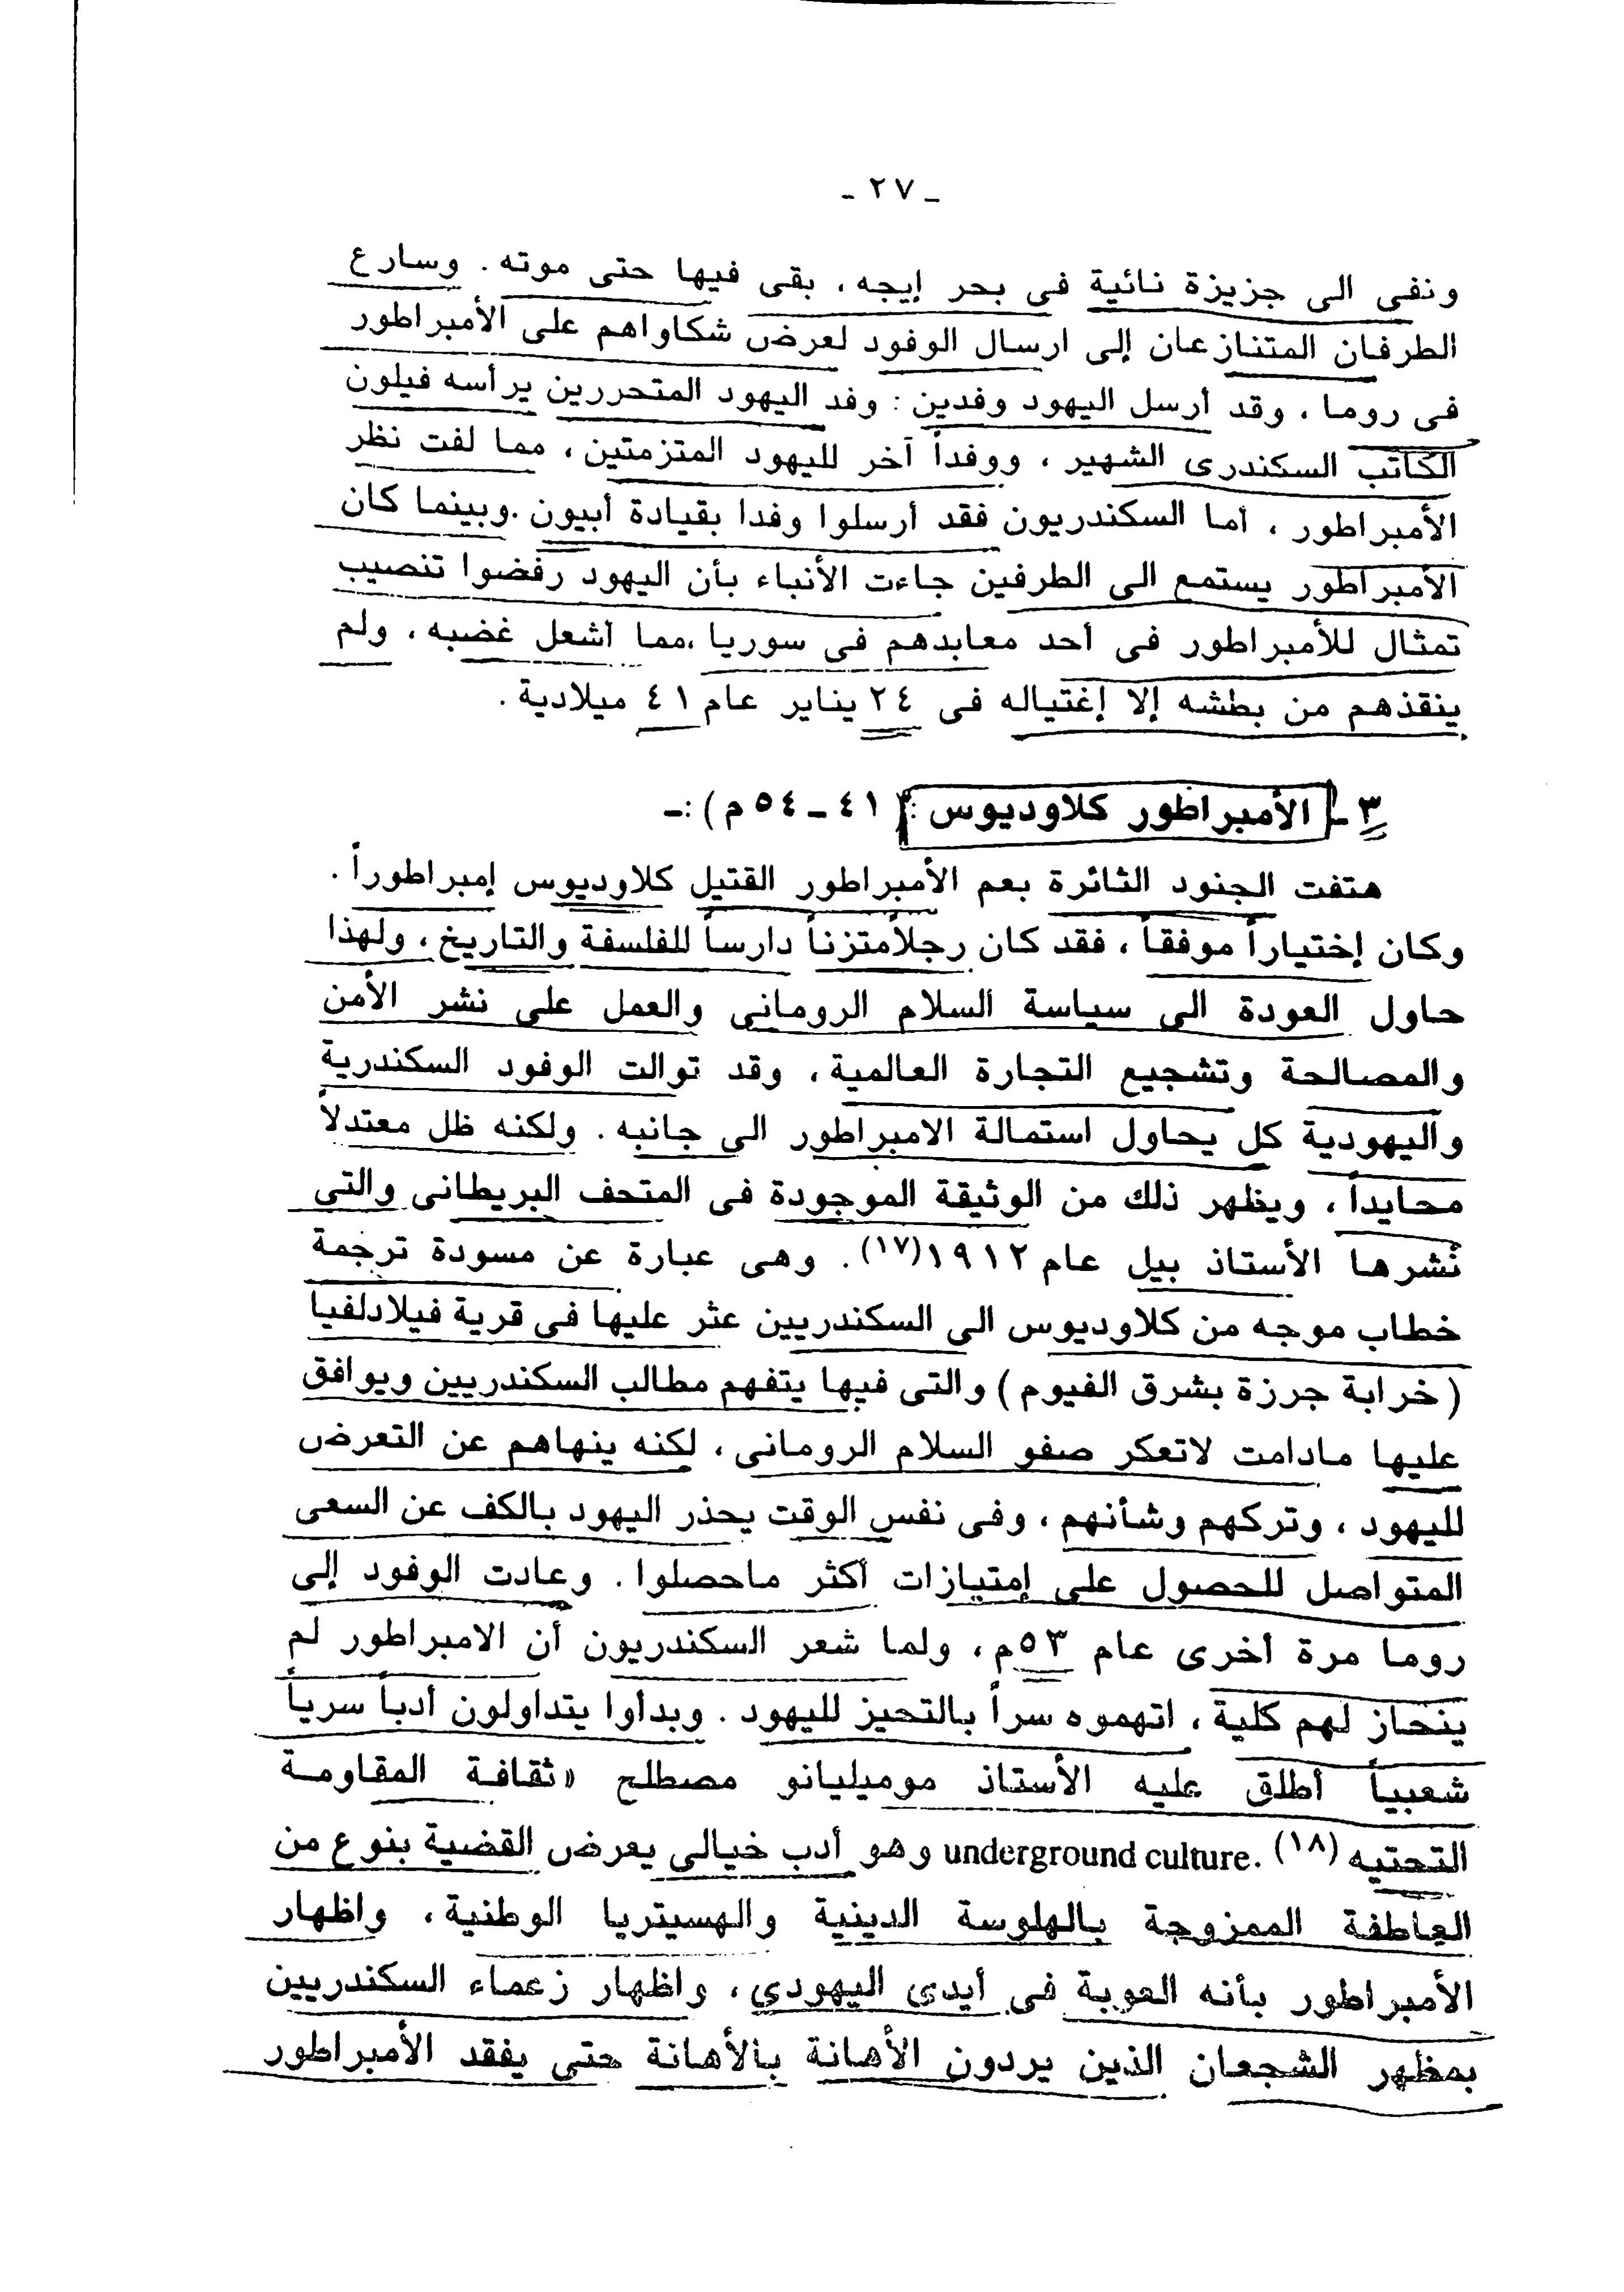 - ٢٧ -
ونفى الى جزيزة نائية فى بحر إيجه ، بقى فيها حتى موته . وسارع
الطرفان المتنازعان إلى ارسال الوفود لعرض شكاواهم على الأمبراطور
فى روما ، وقد أرسل اليهود وفدين : وفد اليهود المتحررين يرأسه فيلون
الكاتب السكندرى الشهير ، ووفداً آخر لليهود المتزمتين ، مما لفت نظر
الأمبراطور ، أما السكندريون فقد أرسلوا وفدا بقيادة أبيون .وبينما كان
الأمبراطور يستمع الى الطرفين جاءت الأنباء بأن اليهود رفضوا تنصيب
تمثال للأمبراطور فى أحد معابدهم فى سوريا ،مما أشعل غضبه ، ولم
ينقذهم من بطشه إلا إغتياله فى ٢٤ يناير عام ٤١ ميلادية .
٣ - الأمبراطور كلاوديوس : (٤١ - ٥٤ م ) :-
هتفت الجنود الثائرة بعم الأمبراطور القتيل كلاوديوس إمبراطوراً .
وكان إختياراً موفقاً ، فقد كان رجلاًمتزناً دارساً للفلسفة والتاريخ ، ولهذا
حاول العودة الى سياسة السلام الرومانى والعمل على نشر الأمن
والمصالحة وتشجيع التجارة العالمية ، وقد توالت الوفود السكندرية
واليهودية كل يحاول استمالة الامبراطور الى جانبه . ولكنه ظل معتدلاً
محايداً ، ويظهر ذلك من الوثيقة الموجودة فى المتحف البريطانى والتى
نشرها الأستاذ بيل عام ١٩١٢(١٧) . وهى عبارة عن مسودة ترجمة
خطاب موجه من كلاوديوس الى السكندريين عثر عليها فى قرية فيلادلفيا
( خرابة جرزة بشرق الفيوم ) والتى فيها يتفهم مطالب السكندريين ويوافق
عليها مادامت لاتعكر صفو السلام الرومانى ، لكنه ينهاهم عن التعرض
لليهود ، وتركهم وشأنهم ، وفى نفس الوقت يحذر اليهود بالكف عن السعى
المتواصل للحصول على إمتيازات أكثر ماحصلوا . وعادت الوفود إلى
روما مرة أخرى عام ٥٣م ، ولما شعر السكندريون أن الامبراطور لم
ينحاز لهم كلية ، اتهموه سراً بالتحيز لليهود . وبدأوا يتداولون أدباً سرياً
شعبياً أطلق عليه الأستاذ موميليانو مصطلح « ثقافة المقاومة
التحتيه (١٨) .underground culture وهو أدب خيالى يعرض القضية بنوع من
العاطفة الممزوجة بالهلوسة الدينية والهسيتريا الوطنية ، واظهار
الأمبراطور بأنه العوبة فى أيدى اليهودي ، واظهار زعماء السكندريين
بمظهر الشجعان الذين يردون الأهانة بالأهانة حتى يفقد الأمبراطور